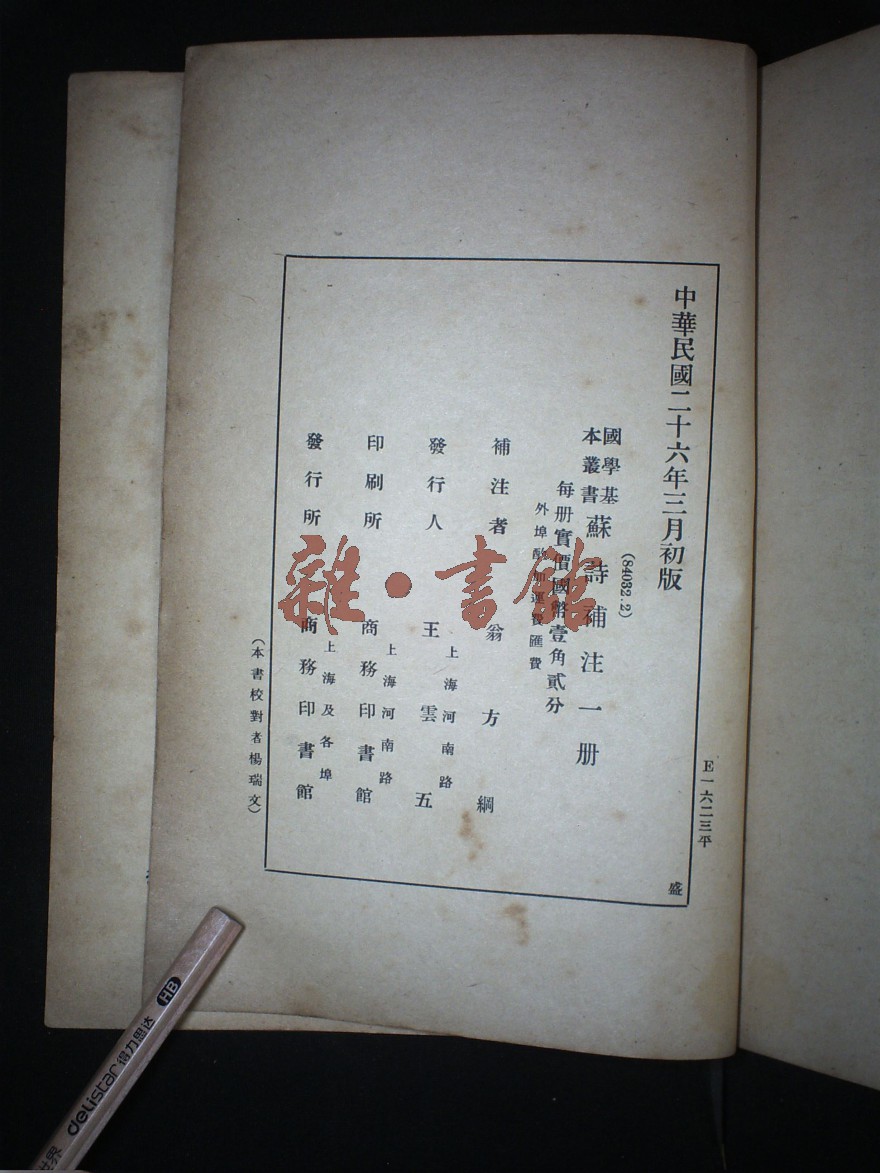 中華民國二十六年三月初版
(84032.2)
國學基
本叢書
蘇詩補注一册
每册實價國幣壹角貳分
外埠酌加運費匯費
補注者 翁方綱
發行人 王雲五
上海河南路
印刷所 商務印書館
上海河南路
發行所 商務印書館
上海及各埠
(本書校對者楊瑞文)
E一六二三平
盛
雜·書館
世界 delistar 得力思达 HB